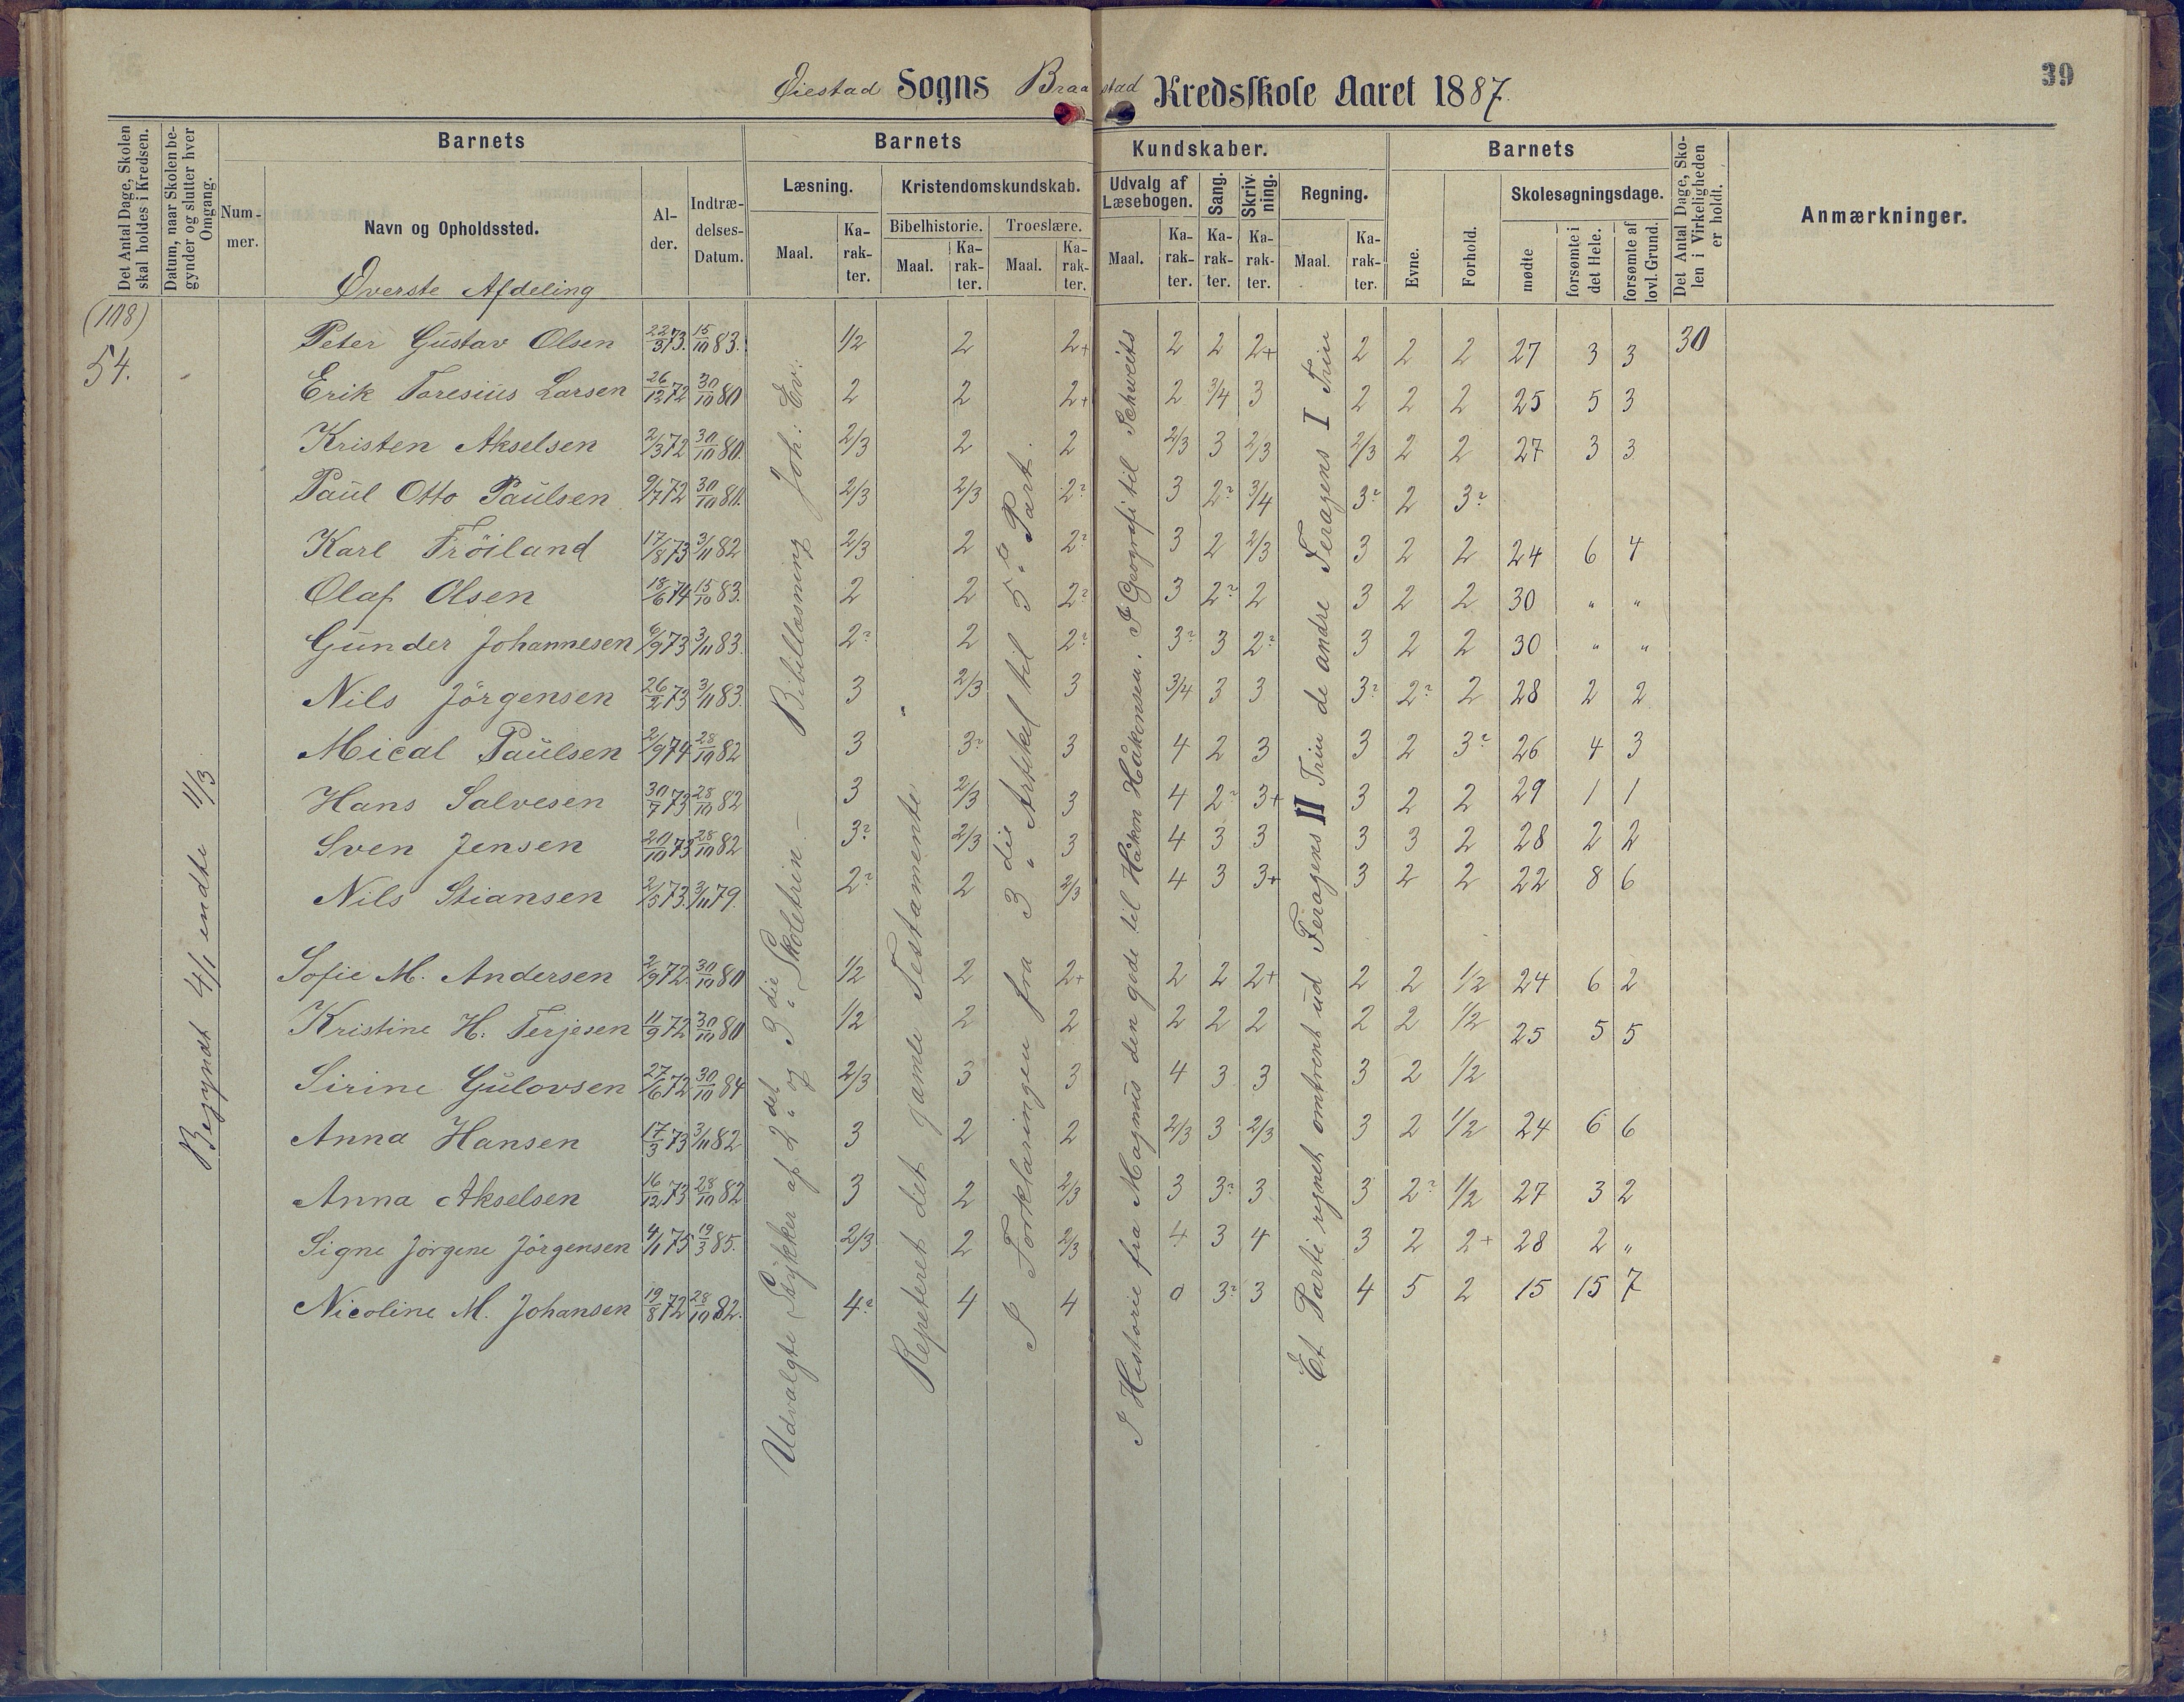 Øiestad Sogns Braastad Kredsskole Aaret 1887.
39
Det Antal Dage, Skolen skal holdes i Kredsen.
Datum, naar Skolen begynder og slutter hver Omgang.
Barnets
Nummer.
Navn og Opholdssted.
Alder.
Indtrædelses-Datum.
Barnets Kundskaber.
Læsning.
Maal.
Karakter.
Kristendomskundskab.
Bibelhistorie.
Maal.
Karakter.
Troeslære.
Maal.
Karakter.
Udvalg af Læsebogen.
Maal.
Karakter.
Sang.
Karakter.
Skrivning.
Karakter.
Regning.
Maal.
Karakter.
Barnets
Evne.
Forhold.
Skolesøgningsdage.
mødte
forsømte i det Hele.
forsømte af lovl. Grund.
Det Antal Dage, Skolen i Virkeligheden er holdt.
Anmærkninger.
Øverste Afdeling
(108)
54.
Begyndt 4/1 endte 11/3
Peter Gustav Olsen 22/3 73. 15/10 83. 1/2 2 2+ 2 2 2+ 2 2 2 27 3 3 30
Erik Taresius Larsen 26/12 72 30/10 80 2 2 2+ 2 3/4 3 2 2 2 25 5 3
Kristen Akselsen 2/3 72 30/10 80. 2/3 2 2 2/3 3 2/3 2/3 2 2 27 3 3
Paul Otto Paulsen 9/7 72 30/10 80. 2/3 2/3 2? 3 2? 3/4 3? 2 3?
Karl Frøiland 17/8 73 3/11 82 2/3 2 2? 3 2 2/3 3 2 2 24 6 4
Olaf Olsen 18/6 74 15/10 83. 2 2 2? 3 2? 2 3 2 2 30 " "
Gunder Johannesen 6/9 73 3/11 83. 2? 2 2? 3? 3 2? 3 2 2 30 " "
Nils Jörgensen 26/2 73 3/11 83. 3 2/3 3 3/4 3 3 3? 2? 2 28 2 2
Mical Paulsen 2/9 74 28/10 82 3 3? 3 4 2 3 3 2 3? 26 4 3
Hans Salvesen 30/7 73 28/10 82 3 2/3 3 4 2? 3+ 3 2 2 29 1 1
Sven Jensen 20/10 73 28/10 82 3? 2/3 3 4 3 3 3 3 2 28 2 2
Nils Stiansen 2/5 73. 3/11 79. 2? 2 2/3 4 3 3+ 3 2 2 22 8 6
Sofie M. Andersen 2/9 72. 30/10 80 1/2 2 2+ 2 2 2+ 2 2 1/2 24 6 2
Kristine H. Terjesen 11/9 72 30/10 80 1/2 2 2 2 2 2 2 2 1/2 25 5 5
Sirine Gulovsen 27/6 72 30/10 84 2/3 3 3 4 3 3 3 2 1/2
Anna Hansen 17/3 73 3/11 82 3 2 2 2/3 3 2/3 3 2 1/2 24 6 6
Anna Akselsen 16/12 73 28/10 82 3 2 2/3 3 3? 3 3 2? 1/2 27 3 2
Signe Jörgine Jörgensen 4/1 75 19/3 85. 2/3 2 2/3 4 3 4 3 2 2+ 28 2 "
Nicoline M. Johansen 19/8 72 28/10 82. 4? 4 4 0 3? 3 4 5 2 15 15 7
Udvalgte Stykker af 2det og 3die Skoletrin. – Bibellæsning Joh: Ev:
Repeteret det gamle Testamente
I Forklaringen fra 3die Artikel til 5te Part.
I Historie fra Magnus den gode til Håkon Håkonsen. I Geografi til Schweits
Et Parti regnet omtrent ud Feragens II Trin de andre Feragens I Trin